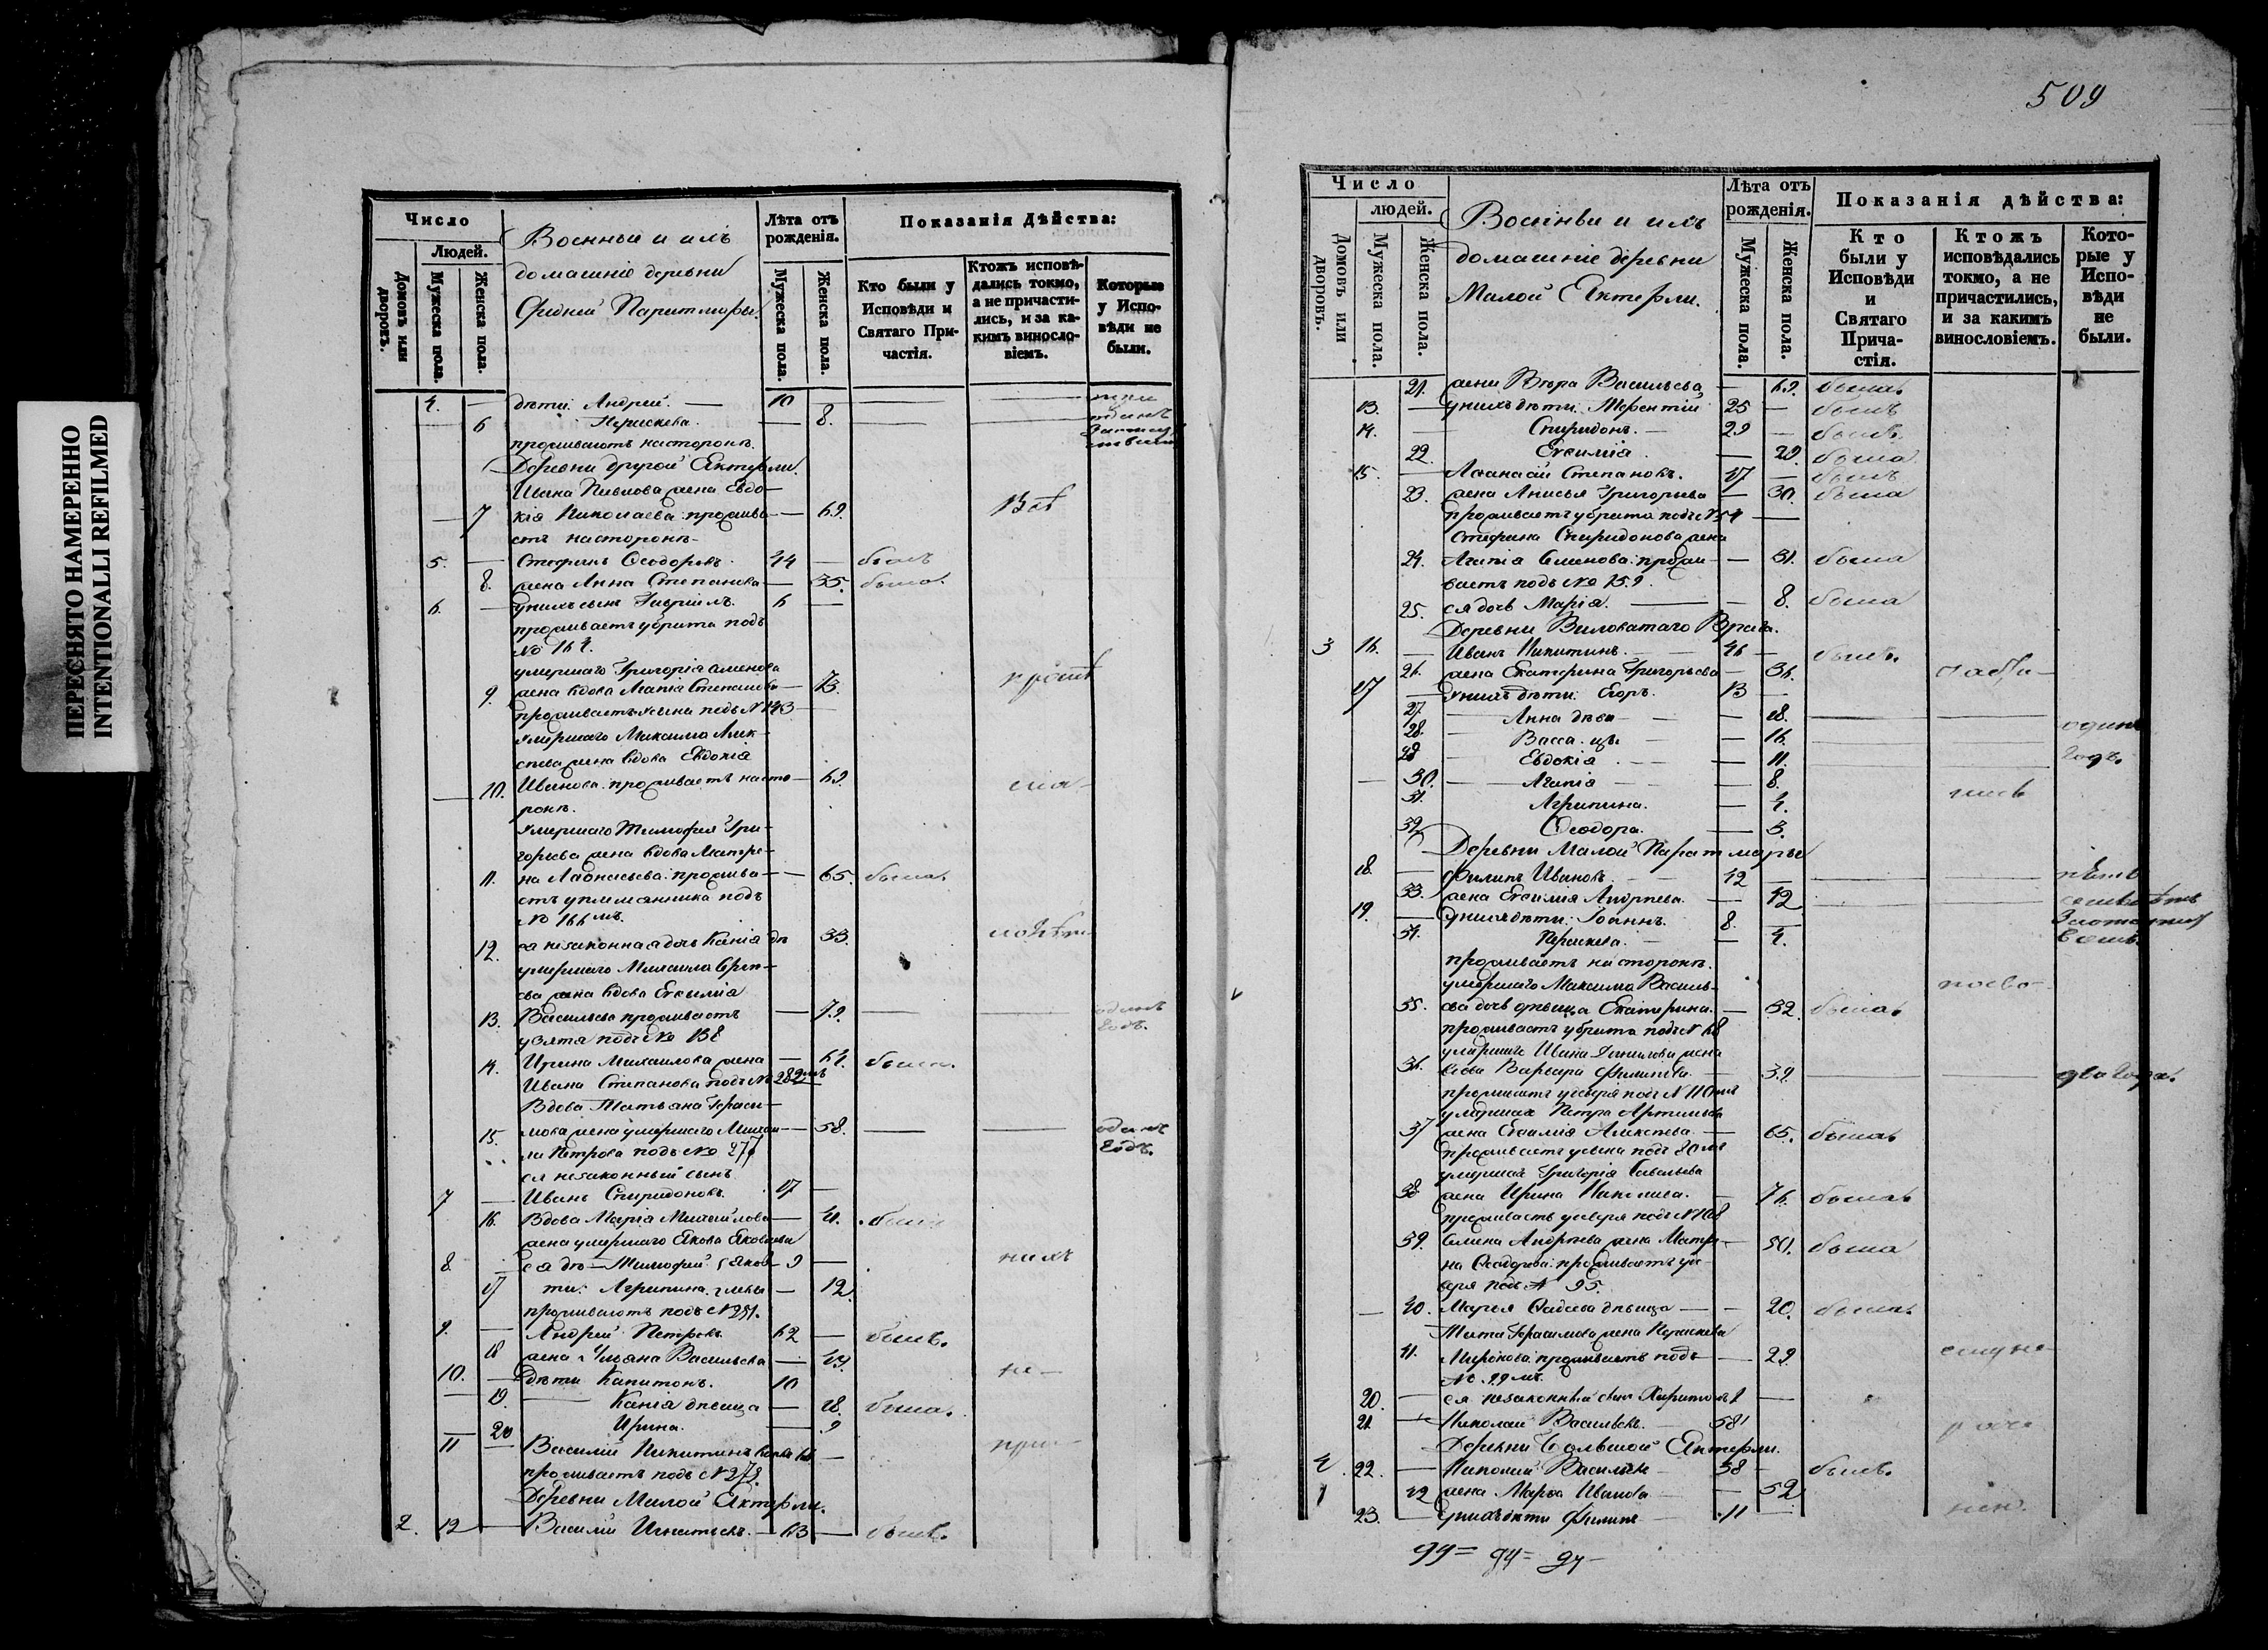 ПЕРЕСНЯТО НАМЕРЕННО
INTENTIONALLI REFILMED
Число
Людей.
Домовъ или дворовъ.
Мужеска пола.
Женска пола.
Военныи и ихъ
домашніе деревни
Средней Паратмары.
Лѣта отъ рожденія.
Мужеска пола.
Женска пола.
Показанія Дѣйства:
Кто были у Исповѣди и Святаго Причастія.
Ктожъ исповѣдались токмо, а не причастились, и за какимъ винословіемъ.
Которые у Исповѣди не были.
4. дѣти: Андрей. 10
6 Параскева. 8.
проживаютъ на сторонѣ.
Деревни другой Яктерли
Ивана Павлова жена Евдо-
7 кія Николаева: прожива- 69.
етъ на сторонѣ-
5. Стефанъ Ѳеодоровъ. 44 былъ
8. жена Анна Степанова 35. была.
6. у нихъ сынъ Гавріилъ. 6
проживаетъ у брата подъ
№ 164.
умершаго Григорія Семенова
9. жена вдова Агапія Степанова 73.
проживаетъ у сына подъ № 143
умершаго Максима Алек-
сѣева жена вдова Евдокія
10. Иванова: проживаетъ на сто- 69.
ронѣ.
умершаго Тимофея Гри-
горьева жена вдова Матре-
11. на Афонасьева: прожива- 65. была.
етъ у племянника подъ
№ 166мъ.
12. ея незаконная дочь Ксенія дѣ 33.
умершаго Михаила Сергѣ-
ева жена вдова Евфимія
13. Васильева проживаетъ 79. одинъ
у зятя подъ № 138 годъ.
14. Ирина Михаилова жена 64. была.
Ивана Степанова подъ № 282мъ
Вдова Татьяна Гераси-
15. мова жена умершаго Михаи- 58. одинъ
ла Петрова подъ № 277 годъ.
ея незаконный сынъ
7 Иванъ Спиридоновъ. 17
16. Вдова Марія Михайлова 41. была
жена умершаго Якова Яковлева
8. ея дѣ- Тимофей Яков 9
17 ти: Агрипина 12.
проживаютъ подъ № 251.
9. Андрей Петровъ 62 былъ.
18 жена Ульяна Васильева
10. дѣти Капитонъ. 10
19. Ксенія дѣвица 18. была.
20 Ирина. 9
11 Василій Никитинъ
проживаетъ подъ № 278.
Деревни Малой Яктерли.
2. 12 Василій Игнатьевъ. 63 былъ.
509
Число
людей.
Домовъ или дворовъ.
Мужеска пола.
Женска пола.
Военныи и ихъ
домашніе деревни
Малой Яктерли.
Лѣта отъ рожденія.
Мужеска пола.
Женска пола.
Показанія дѣйства:
Кто были у Исповѣди и Святаго Причастія.
Ктожъ исповѣдались токмо, а не причастились, и за какимъ винословіемъ.
Которые у Исповѣди не были.
21. жена Вѣра Васильева 62. была.
13. у нихъ дѣти: Терентій 25 былъ
14. Спиридонъ. 29 былъ.
22. Евфимія 20. была
15. Афанасій Степановъ. 17 былъ
23. жена Анисья Григорьева 30. была
проживаетъ у брата подъ № 54
Стефана Спиридонова жена
24. Агапія Семенова: прожи- 31. была
ваетъ подъ № 159.
25. ея дочь Марія. 8. была
Деревни Виловатаго Врага.
3 16. Иванъ Никитинъ. 46 былъ.
26. жена Екатерина Григорьева 36.
17 у нихъ дѣти: Егоръ. 13
27. Анна дѣви 18.
28. Васса. 16. одинъ
Евдокія 11. годъ.
30. Агапія 8.
31. Агрипина. 4.
32 Ѳеодора. 3.
Деревни Малой Паратмары
18. Филипъ Ивановъ. 42
33. жена Евфимія Андреева. 42
19. у нихъ дѣти: Іоаннъ. 8.
34. Параскева. 4.
проживаетъ на сторонѣ.
умершаго Максима Василь-
35. ева дочь дѣвица Екатерина. 32. была.
проживаетъ у брата подъ № 68
умершаго Ивана Данилова жена
36. вдова Варвара Филипова. 39. два года.
проживаетъ у деверя подъ № 110мъ
умершаго Петра Артемьева
37 жена Евфимія Алексѣева. 65. была.
проживаетъ у сына подъ 80мъ
умершаго Григорія Савельева
38. жена Ирина Николаева. 76. была.
проживаетъ у деверя подъ № 108
39. Семена Андреева жена Матре- 50. была
на Ѳеодорова: проживаетъ у де-
веря подъ № 95.
40. Марья дѣвица 20. была.
Герасимова жена Параскева
41. Миронова: проживаетъ подъ 29.
№ 99мъ.
20. ея незаконный сынъ Харитонъ
21 Николай Васильевъ. 58
Деревни Большой Яктерли.
4. 22. Николай Васильевъ 58 былъ.
42 жена Марфа Иванова 52
23. у нихъ дѣти Филипъ 11